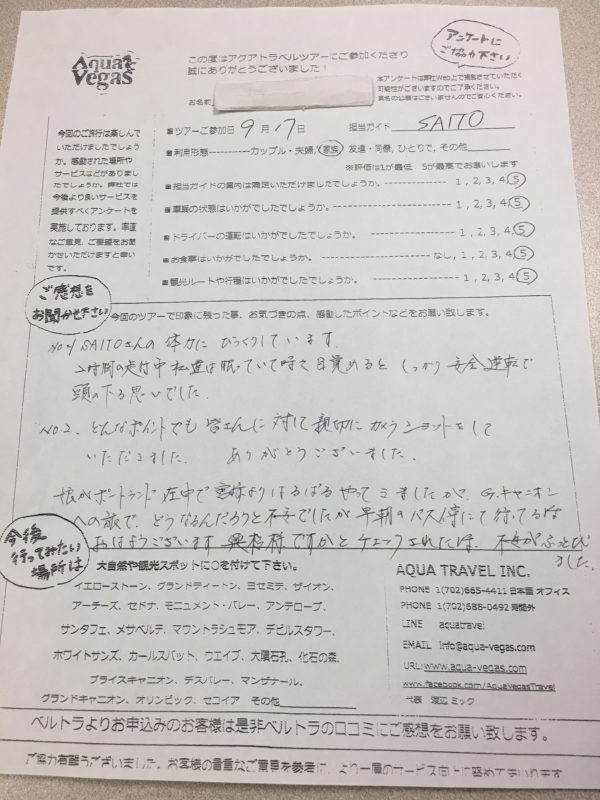 Aqua Vegas
この度はアクアトラベルツアーにご参加くださり
誠にありがとうございました！
アンケートに
ご協力下さい
本アンケートは弊社Web上で掲載させていただく
可能性がございますのでご了承ください。
実名の公表はございませんのでご安心ください。
お名前
今回のご旅行は楽しんで
いただけましたでしょう
か。感動された場所や
サービスなどがありまし
たでしょうか。弊社では
今後より良いサービスを
提供すべくアンケートを
実施しております。率直
なご意見、ご要望をお聞
かせいただけますと幸い
です。
■ツアーご参加日 9月17日 担当ガイド SAITO
■利用形態-----------カップル・夫婦、家族、友達・同僚、ひとりで、その他
※評価は1が最低 5が最高でお願いします
■担当ガイドの案内は満足いただけましたでしょうか。 1, 2, 3, 4, 5
■車輌の状態はいかがでしたでしょうか。 1, 2, 3, 4, 5
■ドライバーの運転はいかがでしたでしょうか。 1, 2, 3, 4, 5
■お食事はいかがでしたでしょうか。 なし, 1, 2, 3, 4, 5
■観光ルートや行程はいかがでしたでしょうか。 1, 2, 3, 4, 5
ご感想を
お聞かせ下さい
今回のツアーで印象に残った事、お気づきの点、感動したポイントなどをお願い致します。
No.1 SAITOさんの体力にびっくりしています。
時間の走行中私達は眠っていて時々目覚めると しっかり安全運転で
頭の下る思いでした。
No.2. どんなポイントでも皆さんに対して親切にカメラショットをして
いただきました。 ありがとうございました。
娘がポートランド在中で よりはるばるやってきましたが、G.キャニオン
への旅で、どうなるんだろうと不安でしたが早朝のバス停にて待ってる
おはようございます 様ですかとチェックされた 不安がふっとび
ました。
今後
行ってみたい
場所は
大自然や観光スポットに○を付けて下さい。
イエローストーン、グランドティートン、ヨセミテ、ザイオン、
アーチーズ、セドナ、モニュメント・バレー、アンテロープ、
サンタフェ、メサベルテ、マウントラシュモア、デビルスタワー、
ホワイトサンズ、カールスバット、ウエイブ、大隕石孔、化石の森、
ブライスキャニオン、デスバレー、マンザナール、
グランドキャニオン、オリンピック、セコイア その他
AQUA TRAVEL INC.
PHONE 1(702)665-4411 日本語 オフィス
PHONE 1(702)588-0492 時間外
LINE aquatravel
EMAIL info@aqua-vegas.com
URL: www.aqua-vegas.com
www.facebook.com/AquaVegasTravel
代表 渡辺 ミック
ベルトラよりお申込みのお客様は是非ベルトラの口コミにご感想をお願い致します。
ご協力有難うございました。お客様の貴重なご意見を参考に、より一層のサービス向上に努めてまいります